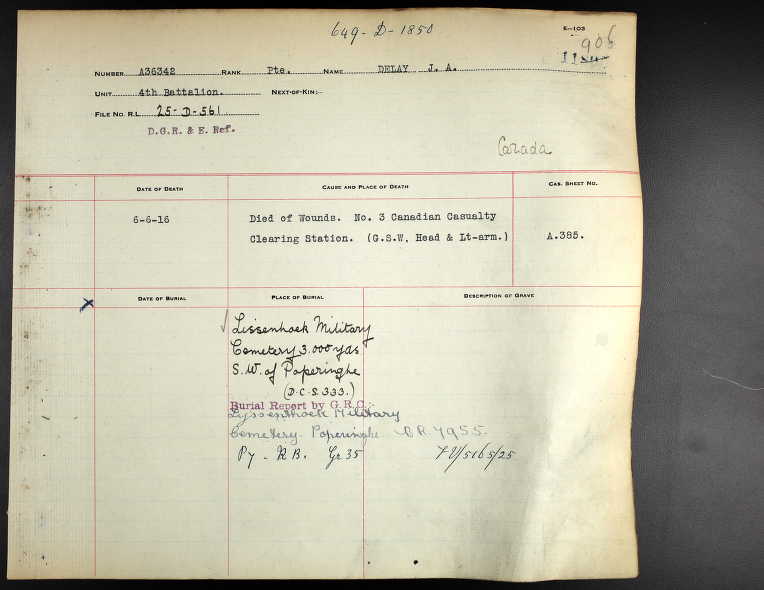 649-D-1850
E-103
906
NUMBER A36342 RANK Pte. NAME DELAY J. A.
UNIT 4th Battalion. NEXT-OF-KIN:-
FILE NO. R.L. 25-D-561
D.G.R. & E. Ref.
Canada
DATE OF DEATH CAUSE AND PLACE OF DEATH CAS. SHEET NO.
6-6-16 Died of Wounds. No. 3 Canadian Casualty
Clearing Station. (G.S.W, Head & Lt-arm.) A.385.
DATE OF BURIAL PLACE OF BURIAL DESCRIPTION OF GRAVE
Lissenhoek Military
Cemetery 3.000 yds
S.W. of Poperinghe
(D.C.S. 333.)
Burial Report by G.R.C.
Lyssenthoek Military
Cemetery. Poperinghe 7955.
Gr 35